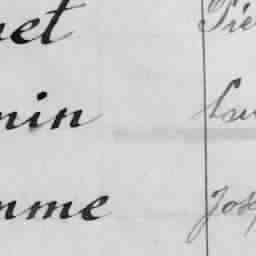 net Pie
min Lau
mme Jos